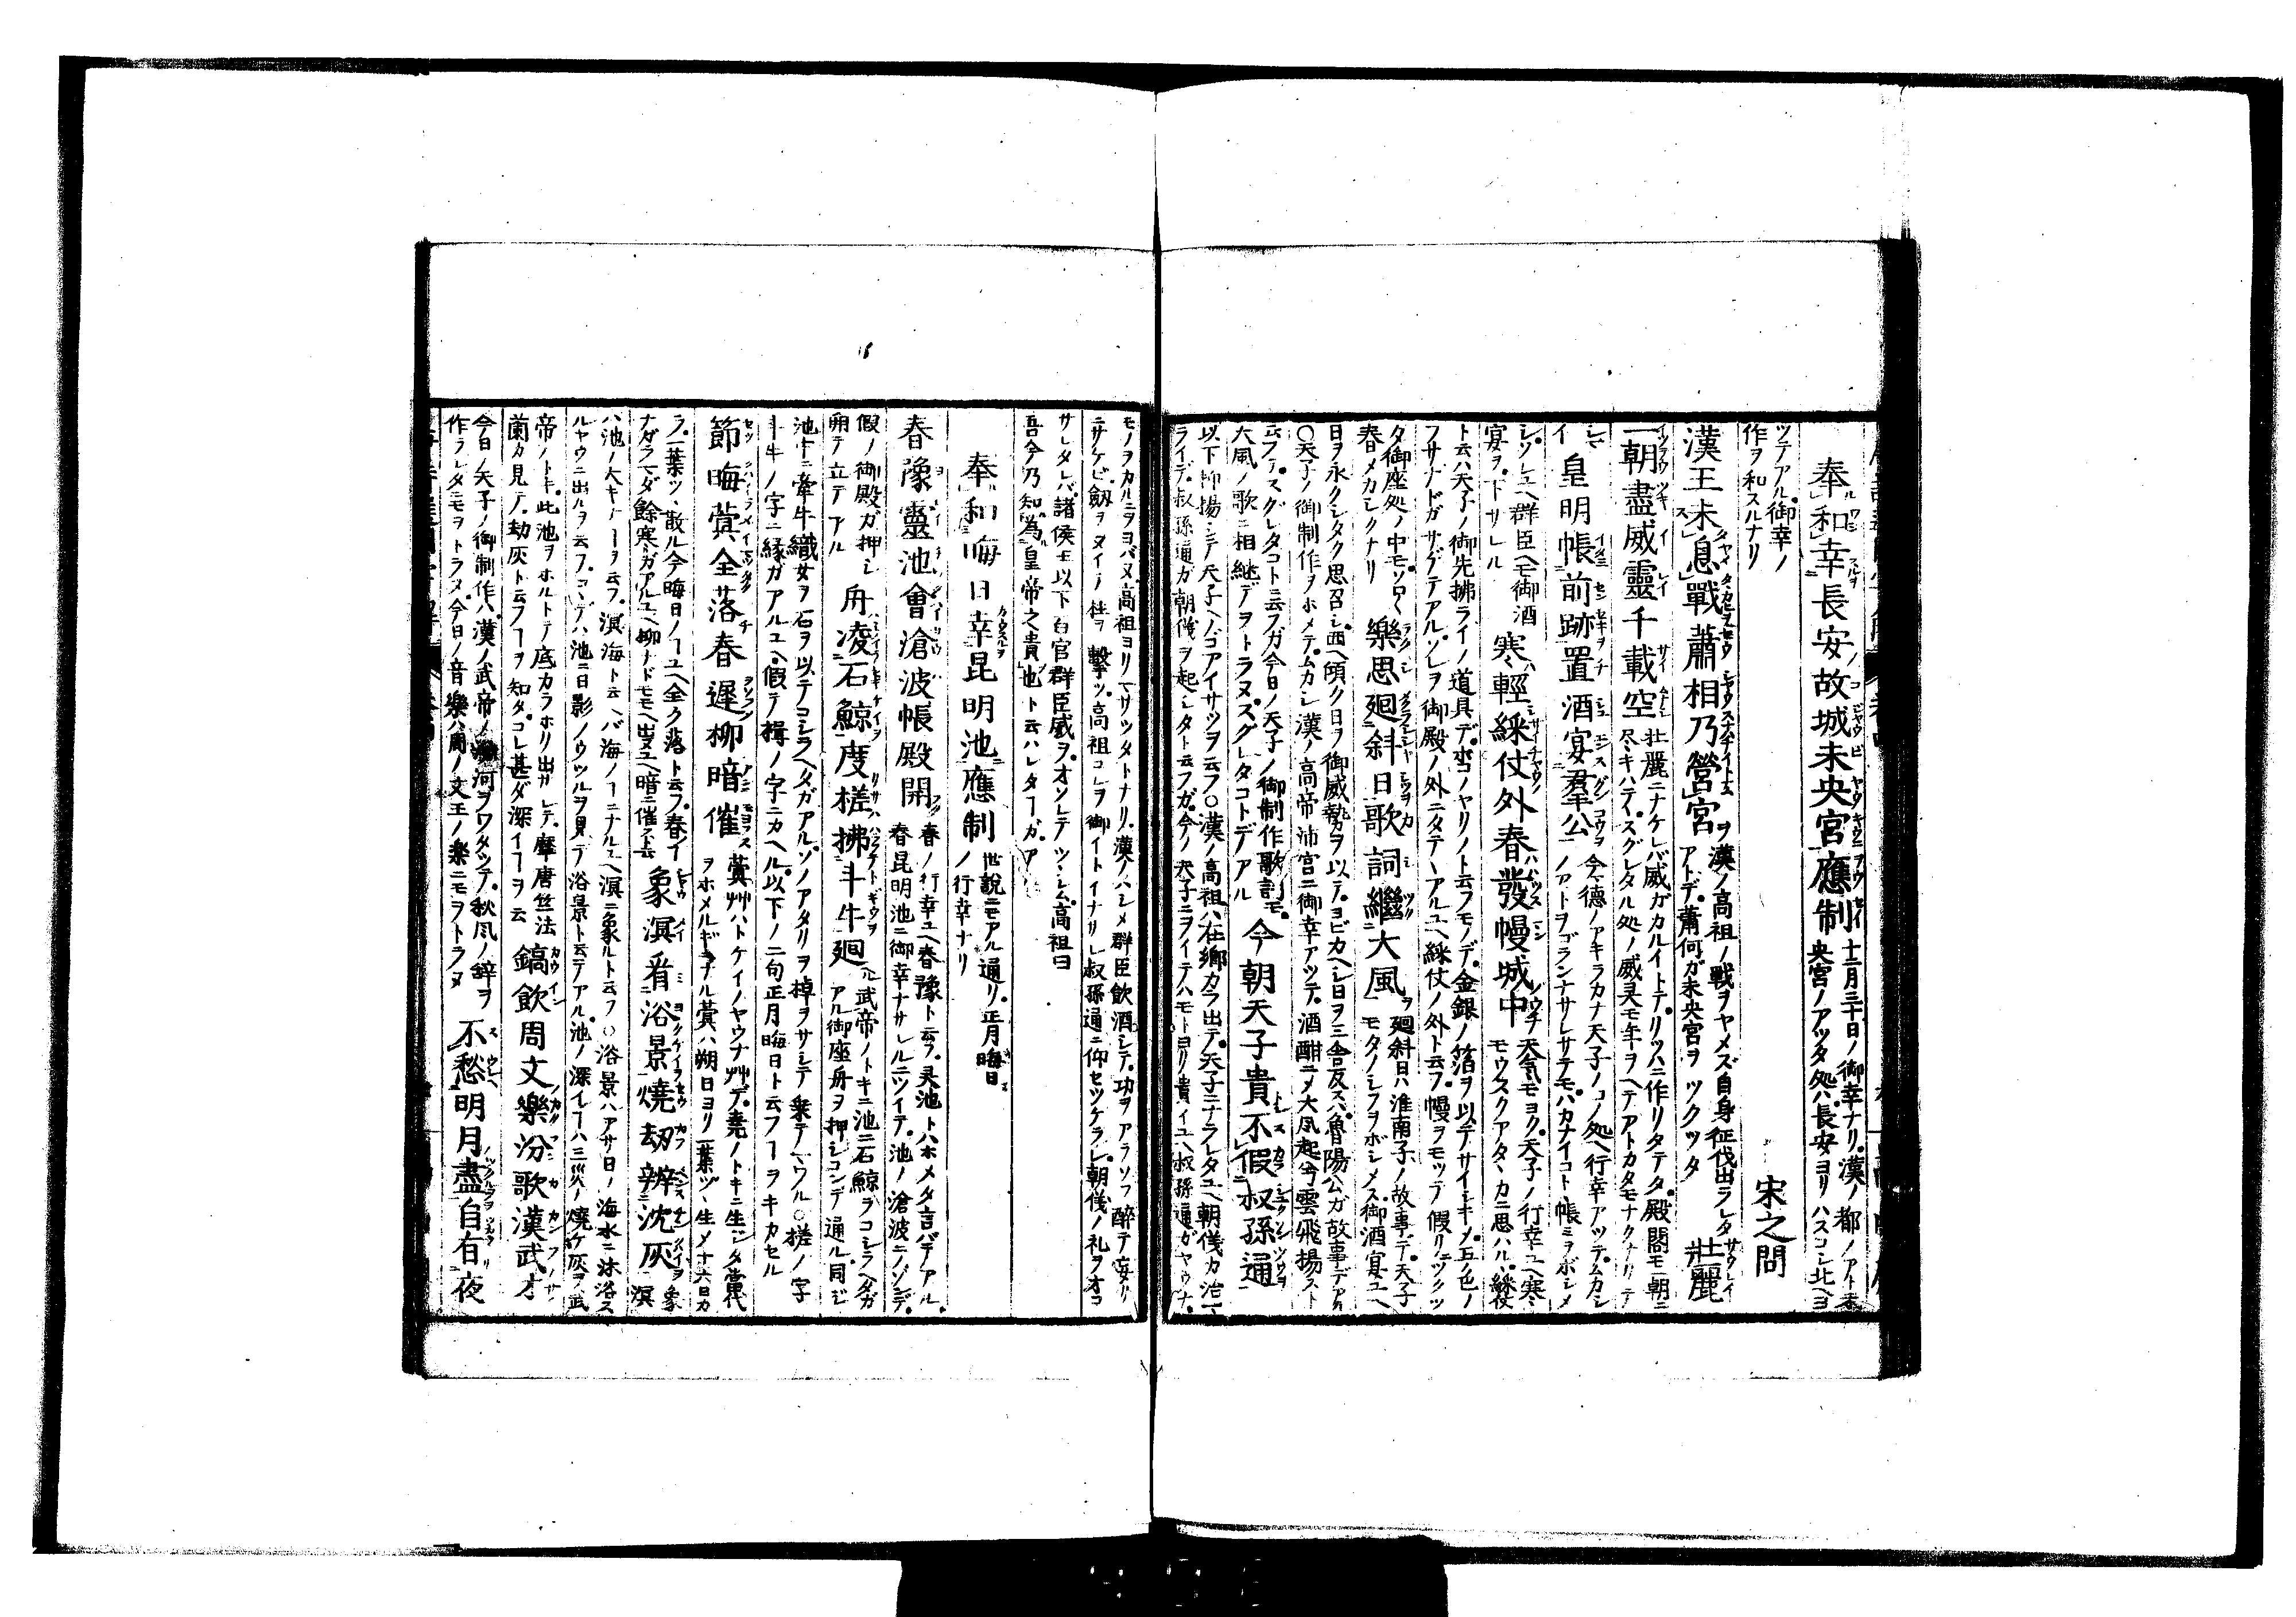 奉和幸長安故城未央宮應制 十二月三十日ノ御幸ナリ漢ノ都ノアト未
央宮ノアツタ処ハ長安ヨリハスコシ北ヘヨ
ツテアル御幸ノ
作ヲ和スルナリ
宋之問
漢王未息戰蕭相乃營宮 漢ノ高祖ノ戰ヲヤメズ自身征伐出ラレタ
アトデ蕭何ガ未央宮ヲツクツタ
壯麗
一朝盡威靈千載空 壮麗ニナケレバ威ガカルイトテリツハニ作リタテタ殿閣モ一朝ニ
尽キハテイスグレタル処ノ威灵モ年ヲヘテアトカタモナクナリテ
イ
皇明帳前跡置酒宴羣公 今德ノアキラカナ天子ノコノ処ヘ行幸アツテムカシ
ノアトヲゴランナサレサテモハカナイコト帳ミヲボシメ
シソレユヘ群臣ヘモ御酒
宴ヲ下サレル
寒輕綵仗外春發幔城中 天氣モヨク天子ノ行幸ユヘ寒
モウスクアタヽカニ思ハル綵仗
ト云ハ天子ノ御先拂ライノ道具デ
フサナドガサゲテアルソレヲ御殿ノ外ニタテヽアルユヘ綵仗ノ外ト云フ幔ヲモツテ假リニツクツ
タ御座処ノ中モソロ〱
春メカレクナリ
樂思廻斜日歌詞繼大風 廻斜日ハ淮南子ノ故事デ天子
モタノシフヲボシメス御酒宴ユヘ
日ヲ永クシタク思召シ西ヘ傾ク日ヲ御威勢ヲ以テヨビカヘシ日ヲ三舎反スハ魯陽公ガ故事デアル
○天子ノ御制作ヲホメテムカシ漢ノ高帝沛宮ニ御幸アツテ酒酣ニメ大風起兮雲飛揚スト
大風ノ歌ニ相継デヲトラヌスグレタコトデアル
今朝天子貴不假叔孫通
以下抑揚シテ天子ヘノゴアイサツヲ云フ○漢ノ高祖ハ在鄉カラ出テ天子ニナラレタユヘ朝儀カ治
ライデ叔孫通ガ朝儀ヲ起シタト云フガ今ノ天子ニヲイテハモトヨリ貴イユヘ叔孫通ガヤウナ
モノヲカルニヲヨバヌ高祖ヨリマサツタトナリ漢ノハシメ群臣飲酒シテ功ヲアラソフ醉テ妄リ
ニサケビ劔ヲヌイテ柱ヲ擊ツ高祖コレヲ御イトイナリレ叔孫通ニ仰セツケラレ朝儀ノ礼ヲオコ
サレタレバ諸侯王以下百官群臣威ヲオソレテツヽシム高祖曰
吾今乃知為皇帝之貴也ト云ハレタ
奉和晦日幸昆明池應制 世說ニモアル通リ正月晦日
ノ行幸ナリ
春豫靈池會滄波帳殿開 春ノ行幸ユヘ春豫ト云フ灵池トハホメタ言バデアル
春昆明池ニ御幸ナサレルニツイテ池ノ滄波ニノゾンデ
假ノ御殿ガ押シ
開テ立テアル
舟凌石鯨度槎拂斗牛廻 武帝ノトキニ池ニ石鯨ヲコシラヘタガ
アル御座舟ヲ押シコンデ通ル同ジ
池中ニ牽牛織女ヲ石ヲ以テコシラヘタガアルソノアタリヲ棹ヲサシテ乗テマワル○槎ノ字
斗牛ノ字ニ縁ガアルユヘ假テ揖ノ字ニカヘル以下ノ二句正月晦日ト云フヿヲキカセル
節晦蓂全落春遲柳暗催 蓂艸ハトケイノヤウナ艸デ堯ノトキニ生シタ當代
ヲホメルギナル蓂ハ朔日ヨリ一葉ヅヽ生メ十六日カ
ラ一葉ツヽ散ル今晦日ノヿユヘ全ク落ト云フ春イ
ナダラマダ餘寒ガアルユヘ柳ナドモモヘ出ヌユヘ暗ニ催スト云
象溟看浴景燒劫辨沈灰 象溟
ハ池ノ大キナヿヲ云フ溟海ト云ヘバ海ノヿニナルユヘ溟ニ象ルト云フ○浴景ハアサ日ノ海水ニ沐浴ス
ルヤウニ出ルヲ云フコヽデハ池ニ日影ノウツルヲ見テ浴景ト云テアル池ノ深イヿハ三災ノ燒ケ灰ヲ武
帝ノトキ此池ヲホルトテ底カラホリ出サレテ摩唐竺法
蘭カ見テ劫灰ト云フヿヲ知タコレ甚ダ深イヿヲ云
鎬飲周文樂汾歌漢武才
今日ノ天子ノ御制作ハ漢ノ武帝ノ河ヲワタツテ秋風ノ辞ヲ
作ラレタモヲトラヌ今日ノ音樂ハ周ノ文王ノ楽ニモヲトラヌ
不愁明月盡自有夜